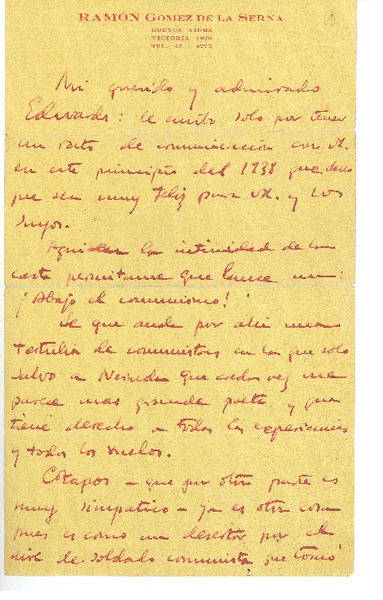 RAMÓN GOMEZ DE LA SERNA
BUENOS AIRES
VICTORIA 1970
TEL. 47 - 4773
Mi querido y admirado
Edwards: le escribo solo por tener
un rato de comunicación con Vd.
en este principio del 1938 que deseo
que sea muy feliz para Vd. y los
suyos.
Aquí en la intimidad de la
carta permitame que lance un:
¡Abajo el comunismo!
Se que anda por ahi una
tertulia de comunistas en la que solo
salvo a Neruda que cada vez me
parece mas grande poeta y que
tiene derecho a todas las experiencias
y todos los vuelos.
Cotapos - que por otra parte es
muy simpatico - ya es otra cosa
pues es como un desertor por el
de soldado comunista que tomó